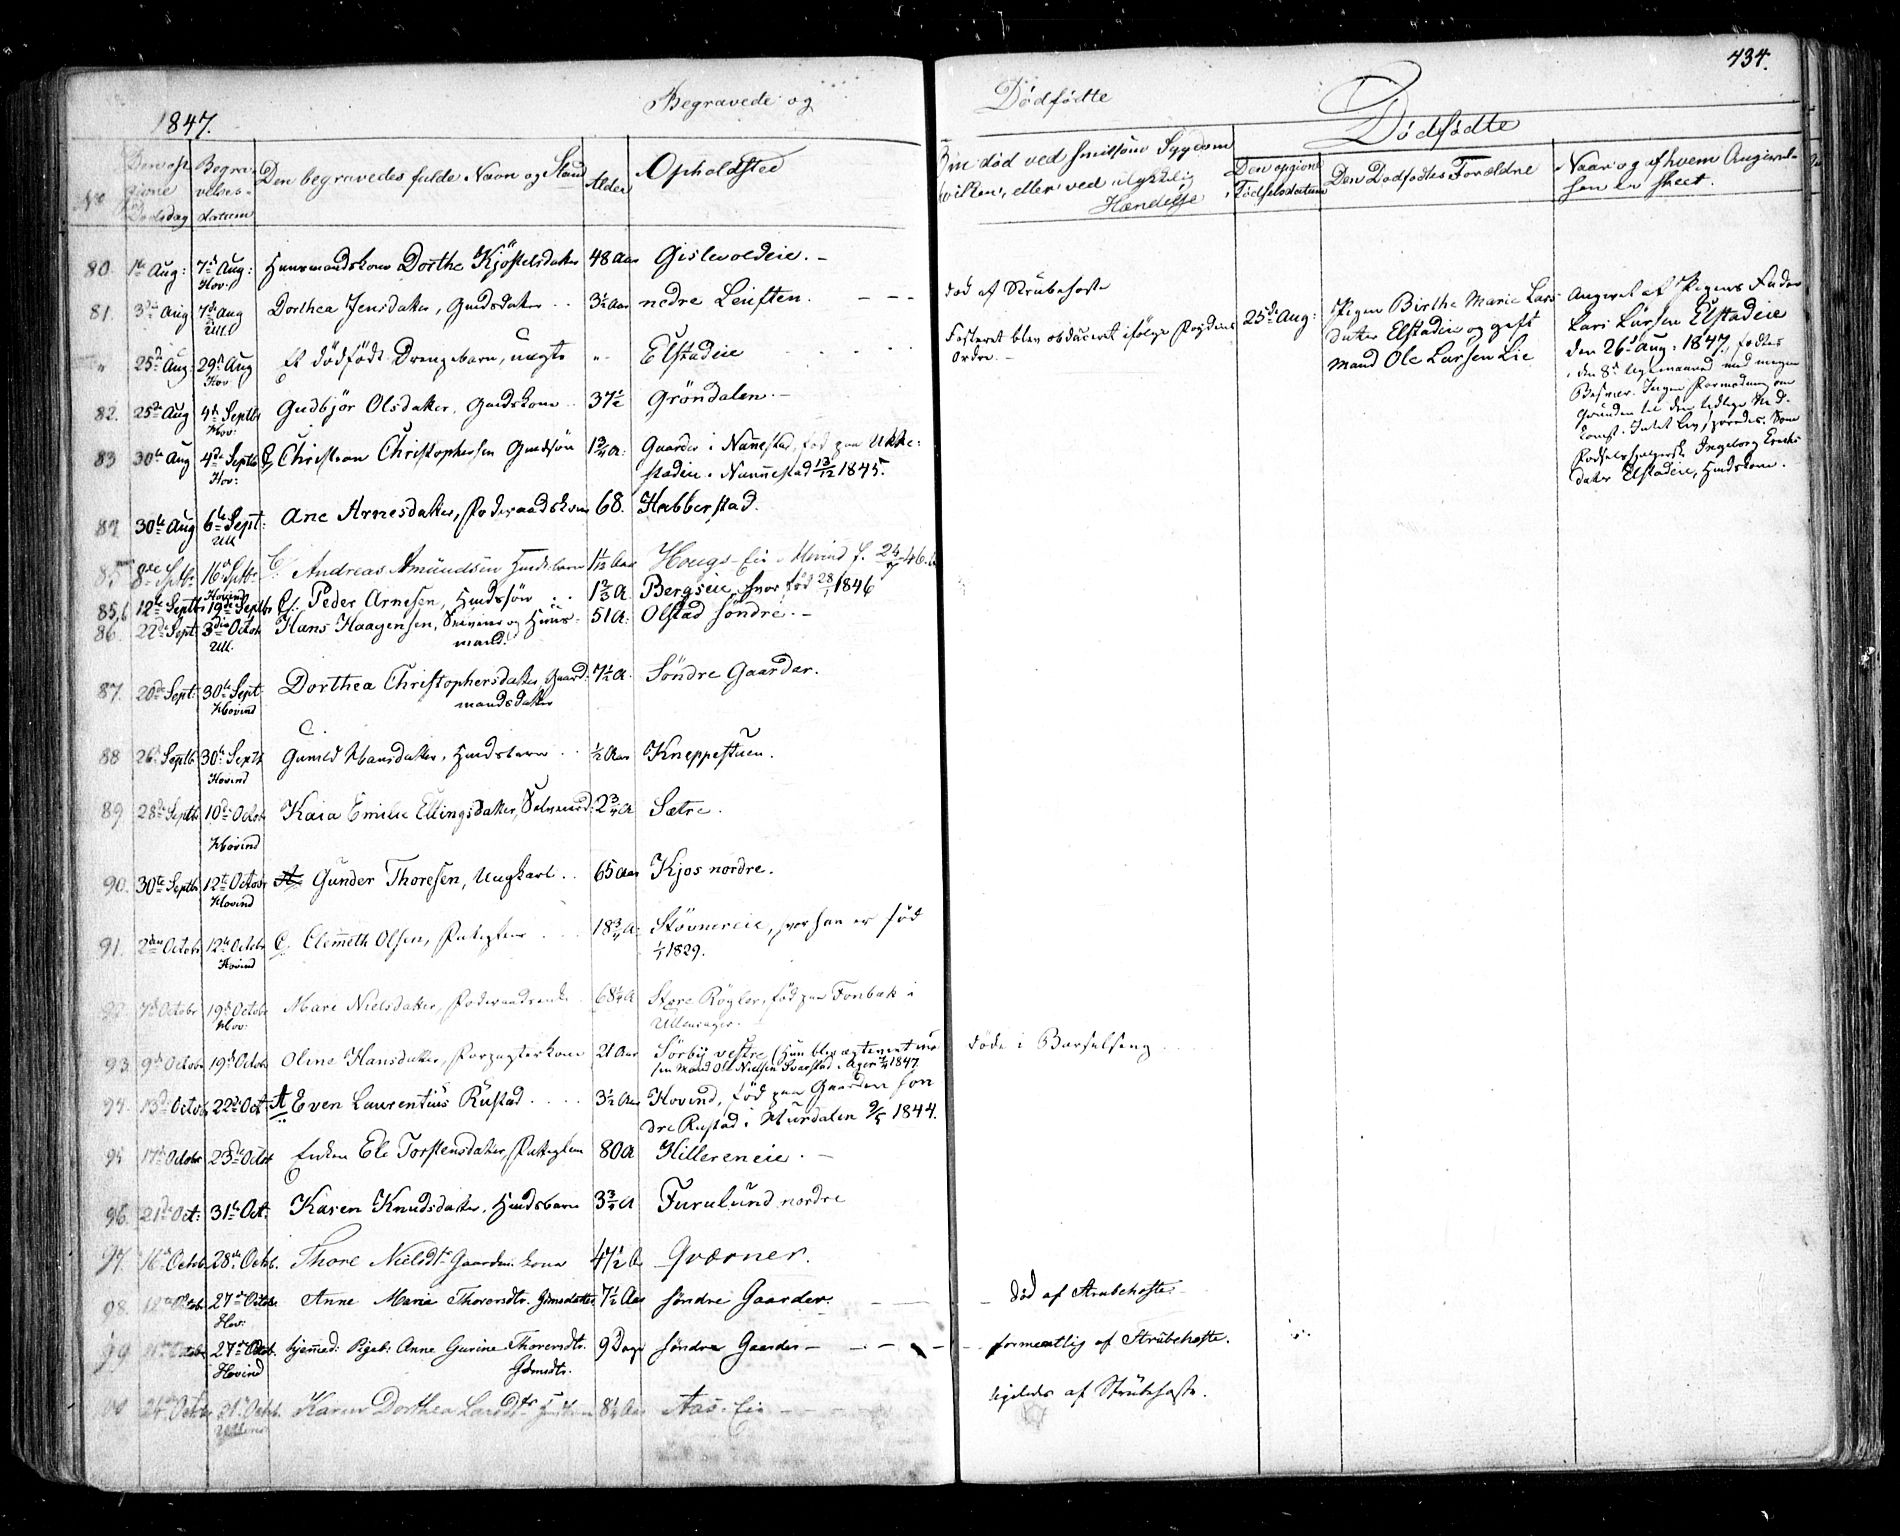 434.
1847.
Begravede og
Dødfødte
Dødfødte
No
Den opgivne Dødsdag
Begravelses-datum
Den begravedes fulde Navn og Stand
Alder
Opholdsted
død ved smitsom Sygdom
hvilken, eller ved ulykkelig
Hændelse
Den opgivne Fødselsdatum
Den Dødfødtes Forældre
Naar og af hvem Angivel-
sen er skeet.
80. 1te Aug: 7de Aug: Hov: Huusmandskone Dorthe Kjöstelsdatter 48 Aar Gislevoldeie. -
81. 3die Aug 7de Aug Ull Dorthea Jensdatter, Gmdsdatter .. 3½ Aar nedre Leiften. - - - død af Strubehoste
" 25de Aug: 29de Aug Hov Et dödfödt Drengebarn, uægte " Elstadeie
Fosteret blev obduceret ifølge Fogdens
Ordre. -
25de Aug:
Pigen Birthe Marie Lars-
datter Elstadeie og gift
Mand Ole Larsen Lie
Angivet af Pigens Fader
Lars Larsen Elstadeie
den 26de Aug: 1847, fødtes
i den 8de med megen
Besvær. Ingen Formodning om
Grunden til den tidlige Ned-
komst. Intet Liv sporedes. Som
Fødselshjelperske Ingeborg Ericks-
datter Elstadeie, Hmdskone.
82. 25de Aug 4de Septbr Hov: Gudbjör Olsdatter, Gmdskone .. 37½ Gröndalen. -
83 30te Aug 4de Septb Hov: Christian Christophersen Gmdsön 1¾ A: Gaarder i Nannestad, fød paa Ukke-
stadeie i Nannestad 13/12 1845.
84 30te Aug 6te Sept: Ull Ane Arnesdatter, Föderaadskone 68. Habberstad.
85 8de Sptr 16de Sptr: Andreas Amundsen Hmdsbarn 1½ Aar Hougs-Eie i Hovind f. 24 46.
85,b 12te Septbr 19de Septbr Hovind Peder Arnesen, Hmdssön .. 1⅔ A. Bergseie, hvor fød 28/1 1846
86. 22de Sept: 3die Octob: Ull. Hans Haagensen, og Huus-
mand. 51 A. Olstad söndre. -
87. 20de Sept: 30te Sept Hovind Dorthea Christophersdatter, Gaard-
mandsdatter 7½ A. Söndre Gaarder.
88 26de Septb 30te Septb Hovind Gunild Hansdatter, Hmdsbarn .. ½ Aar Kneppestuen.
89. 28de Septb 10de Octob Hovind Kaia Emilie Ellingsdatter, 2¾ A Sætre.
90. 30te Septb 12te Octobr Hovind Gunder Thoresen, Ungkarl .. 65 Aar Kjos nordre.
91. 2den Octobr 12te Octobr Hovind Clemmeth Olsen, Fattiglem ... 18¾ A: Stövnereie, hvor han er fød
1829.
92. 7de Octobr 19de Octobr Hov: Mari Nielsdatter, 68¼ A Store Rögler, fød paa Fonbæk i
Ullensager.
93. 9de Octobr 19de Octobr Oline Hansdatter, Forpagterkone 21 Aar Sörby vestre (hun blev ægteviet med
sin Mand Ole Nielsen 1847 døde i Barselseng
94. 13de Octob 22de Oct: A Even Laurentius Rustad .... 3½ Aar Hovind, fød paa Gaarden søn-
dre Rustad i Hurdalen 9/5 1844.
95 17de Octobr 23de Octob Enken Eli Torstensdatter, Fattiglem 80 A Hillereneie. -
96. 21de Oct: 31te Oct: Karen Knudsdatter, Hmdsbarn 3¾ A Furulund nordre
97. 16de Octob 28de Octb. Thore Nielsdtr Gaardm: kone 47½ A Qværner.
98. 12te Octob 27de Octob Hov: Anne Marie Thorersdtr. Gmdsdatter 7½ Aar söndre Gaarder. - død af Strubehoste
99 27de Octob. Hovind hjemmed: Pigeb: Anne Gurine Thorersdtr.
Gdmdsdtr. 9 Dage söndre Gaarder - formentlig af Strubehoste.
100 24de Octobr 31te Octob. Karen Dorthea Larsdtr 8¼ Aar Aas-Eie - - ligeledes af Strubehoste.